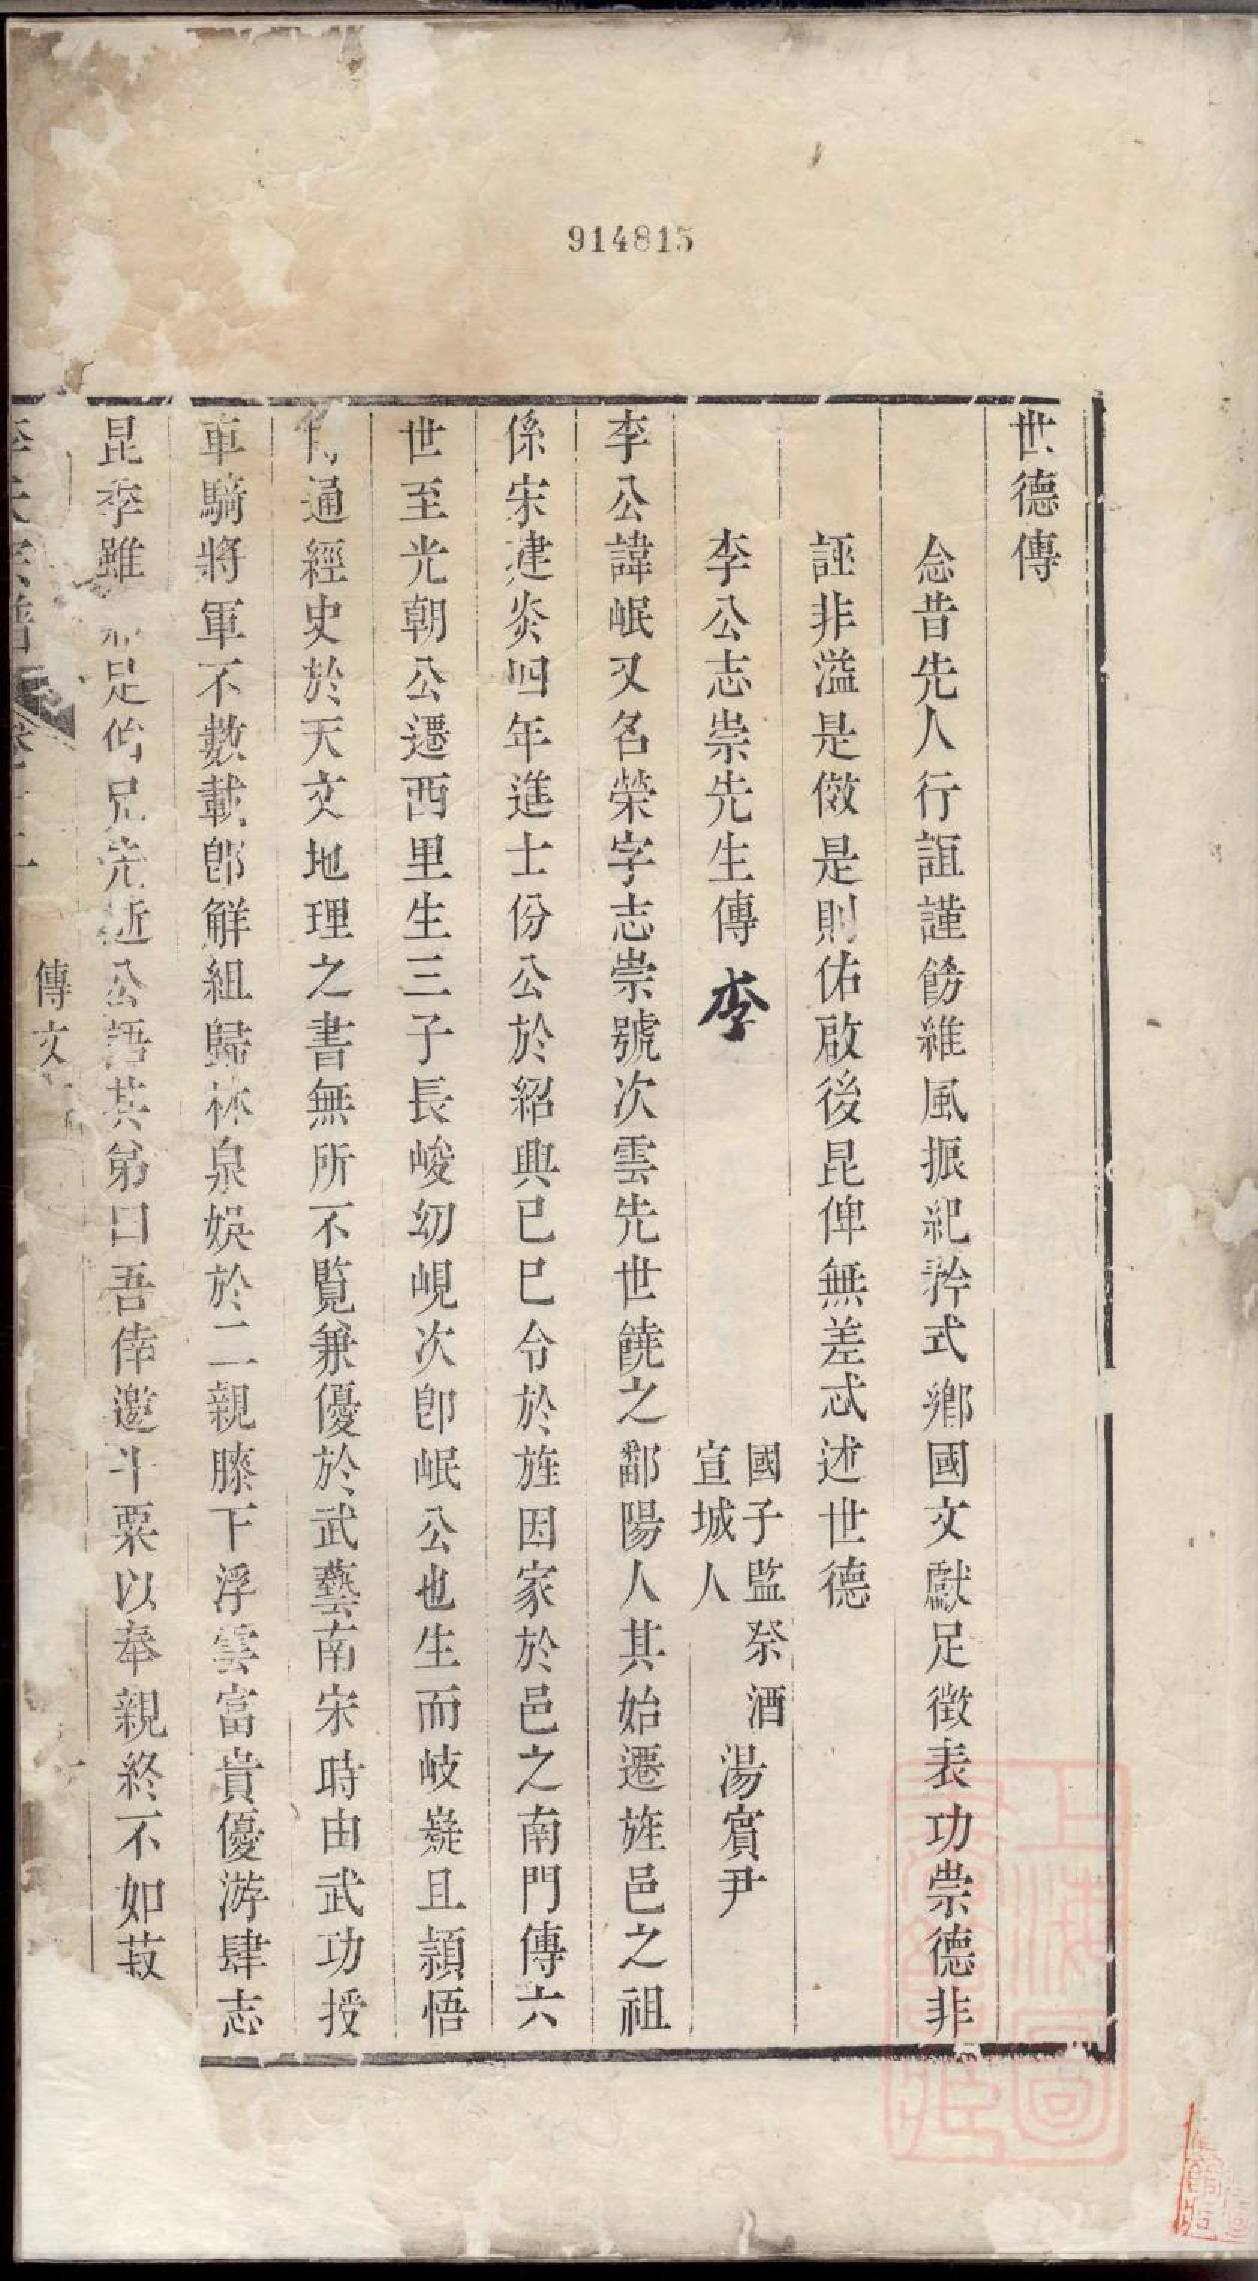 914815
世德傳
念昔先人行誼謹飭維風振祀矜式鄉國文獻足徵表功崇德非
誣非溢是傚是則佑啟後昆俾無差忒述世德
李公志崇先生傳 李
國子監祭酒
宣城人
湯賓尹
李公諱岷又名榮字志崇號次雲先世饒之鄱陽人其始遷旌邑之祖
係宋建炎四年進士份公於紹興已巳令於旌因家於邑之南門傳六
世至光朝公遷西里生三子長峻幼峴次卽岷公也生而岐嶷且穎悟
通經史於天文地理之書無所不覽兼優於武藝南宋時由武功授
車騎將軍不數載卽解組歸林泉娛於二親膝下浮雲富貴優游肆志
昆季雖足兄先逝公語其弟曰吾倖邀斗粟以奉親終不如菽
李氏宗譜 卷
傳文
上海圖書館藏